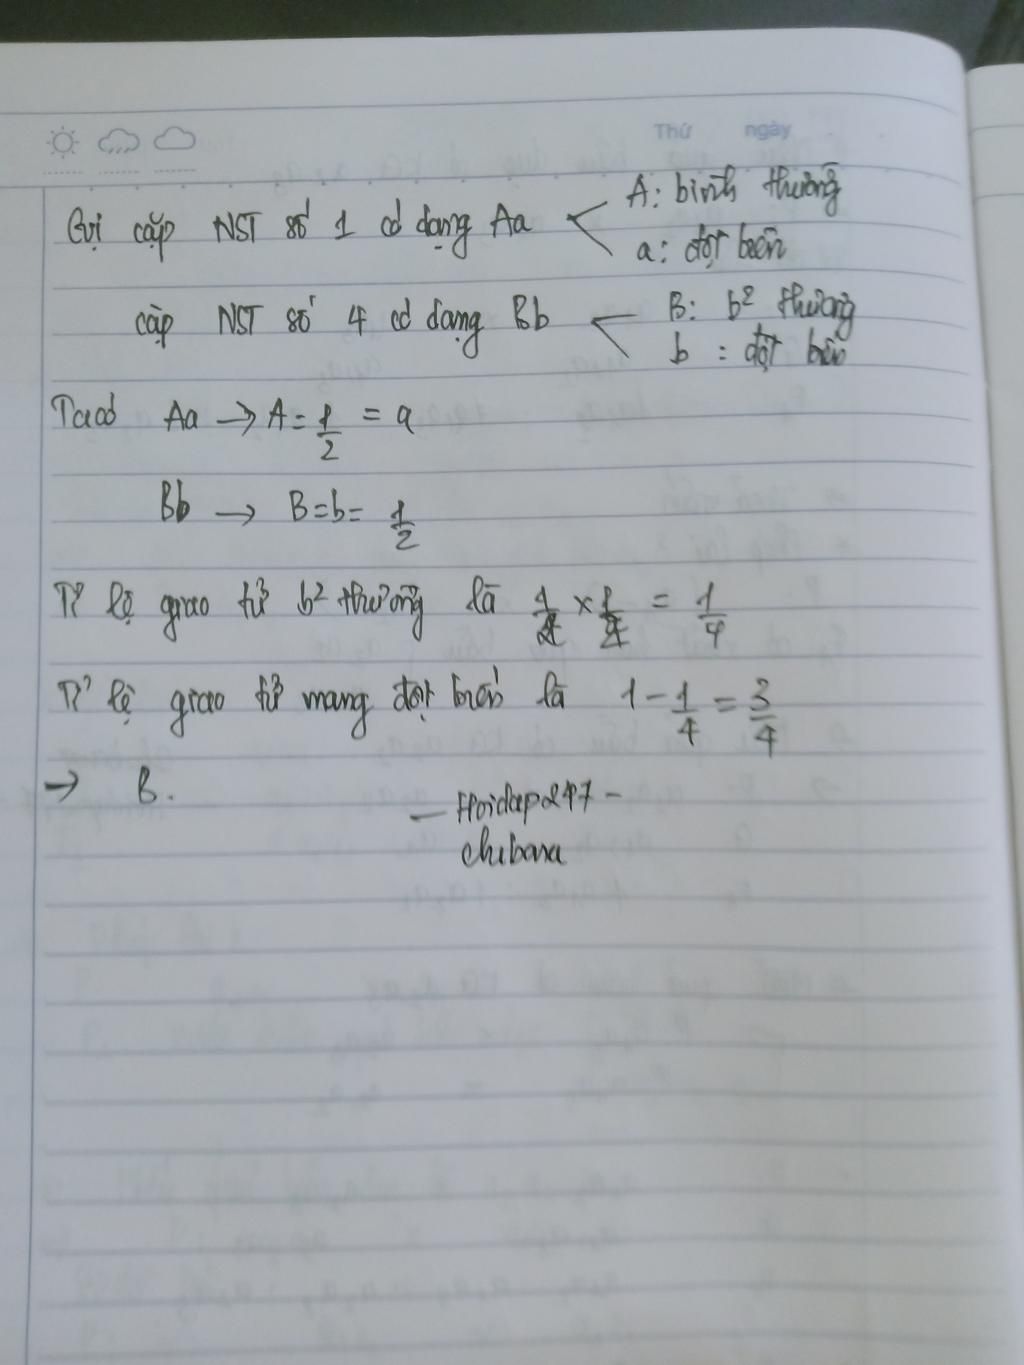 Thứ ngày
Gọi cặp NST số 1 có dạng Aa < A: bình thường
a: đột biến
cặp NST số 4 có dạng Bb < B: b² thường
b : đột biến
Ta có Aa → A = 1/2 = a
Bb → B = b = 1/2
Tỉ lệ giao tử b² thường là 1/2 × 1/2 = 1/4
Tỉ lệ giao tử mang đột biến là 1 - 1/4 = 3/4
→ B.
— Hoidap247 —
chibana